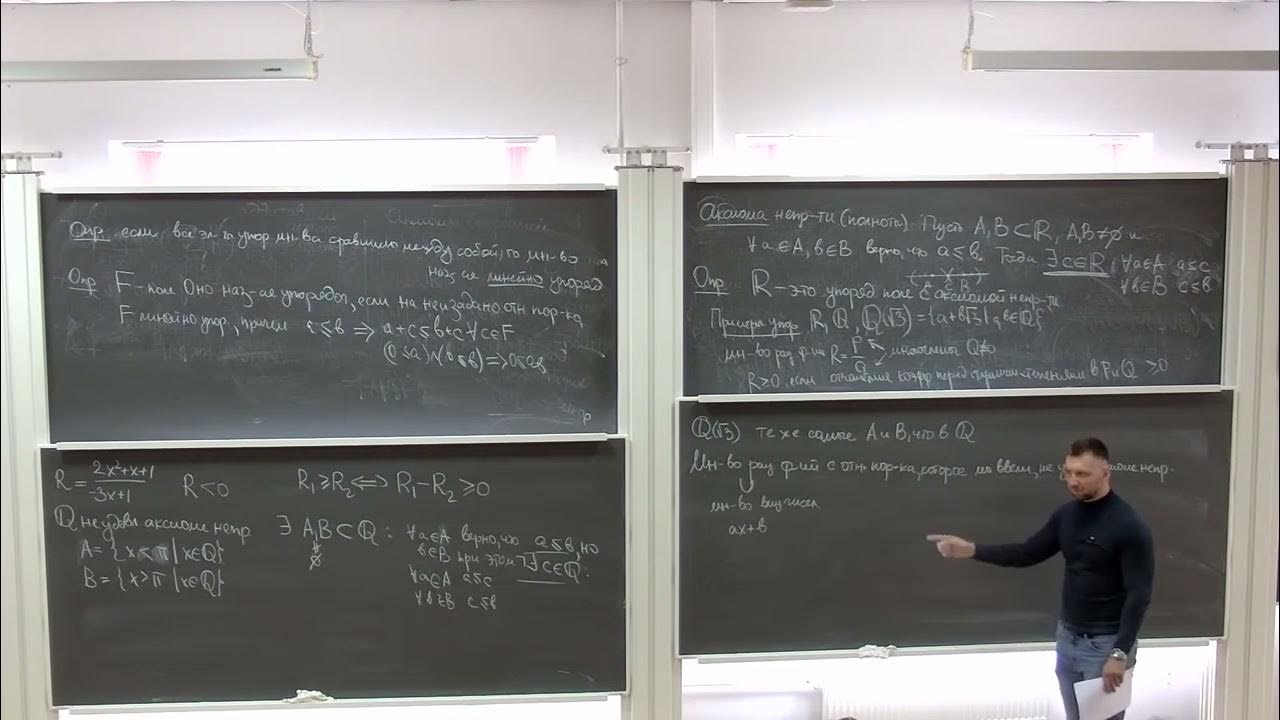 Опр если все эл-ты упор мн-ва сравнимы между собой, то мн-во
наз-ся линейно упоряд
Опр F - поле Оно наз-ся упорядоч, если на нем задано отн пор-ка
F линейно упор, причем a ≤ b ⇒ a+c ≤ b+c ∀c∈F
(0 ≤ a) ∧ (0 ≤ b) ⇒ 0 ≤ ab
R = (2x²+x+1)/(-3x+1) R < 0 R₁ ≥ R₂ ⟺ R₁ - R₂ ≥ 0
ℚ не удовл аксиоме непр
A = {x < π | x∈ℚ}
B = {x > π | x∈ℚ}
∃ A, B ⊂ ℚ: ∀a∈A верно, что a ≤ b, но
≠ ∅
b∈B при этом ∄ c∈ℚ:
∀a∈A a ≤ c
∀b∈B c ≤ b
Аксиома непр-ти (полноты) Пусть A, B ⊂ ℝ, A, B ≠ ∅ и
∀a∈A, b∈B верно, что a ≤ b. Тогда ∃ c∈ℝ, ∀a∈A a ≤ c
∀b∈B c ≤ b
A c B
Опр ℝ - это упоряд поле с аксиомой непр-ти
Примеры упор ℝ, ℚ, ℚ(√3) = {a+b√3 | a, b∈ℚ}
мн-во рац ф-ий R = P/Q многочлены Q ≠ 0
R > 0, если отношение коэфф перед старшими степенями в P и Q > 0
ℚ(√3) те же самые A и B, что в ℚ
Мн-во рац ф-ий с отн пор-ка, которое мы ввели, не удовл аксиоме непр-
мн-во вещ чисел
ax+b